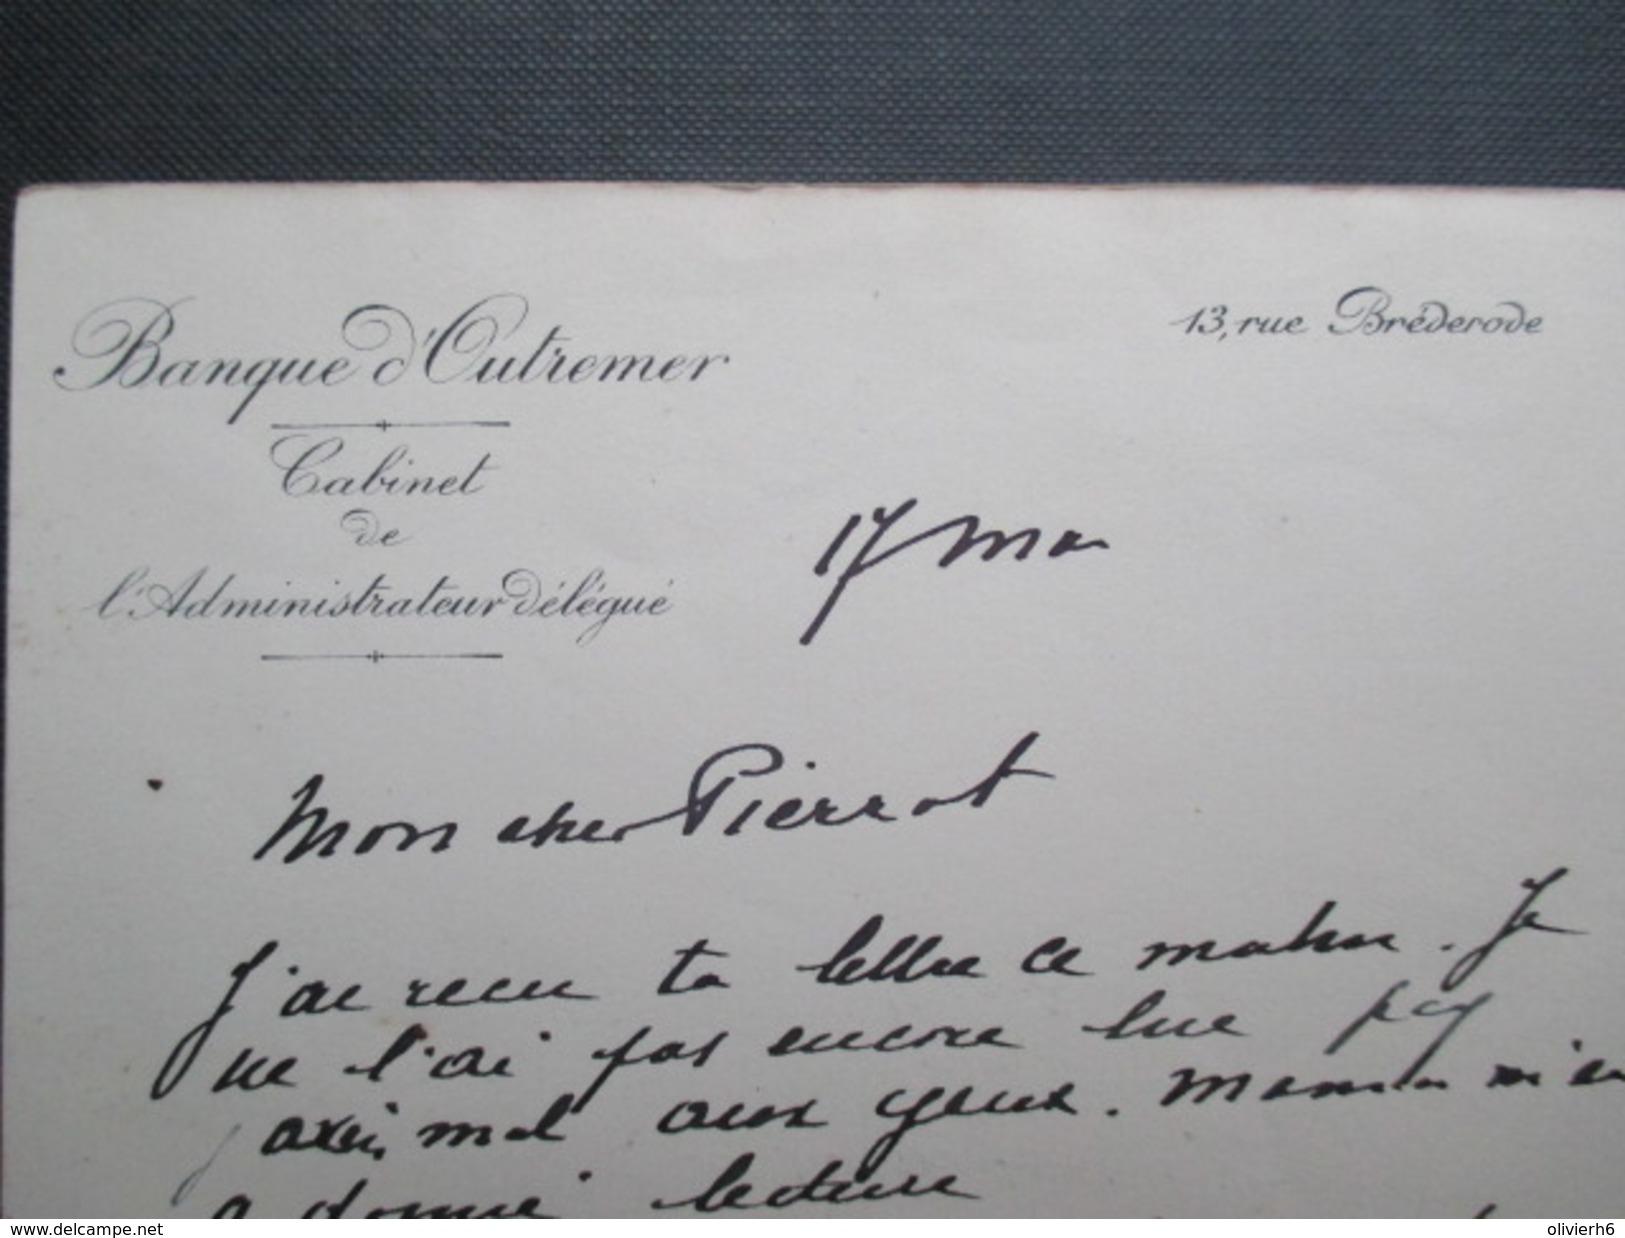 Banque d'Outremer
13, rue Bréderode
Cabinet
de
l'Administrateur Délégué
17 Mai
Mon cher Pierrot
J'ai reçu ta lettre ce matin. Je
ne l'ai pas encore lue
mal aux yeux. Maman m'en
a donné lecture
www.delcampe.net
olivierh6